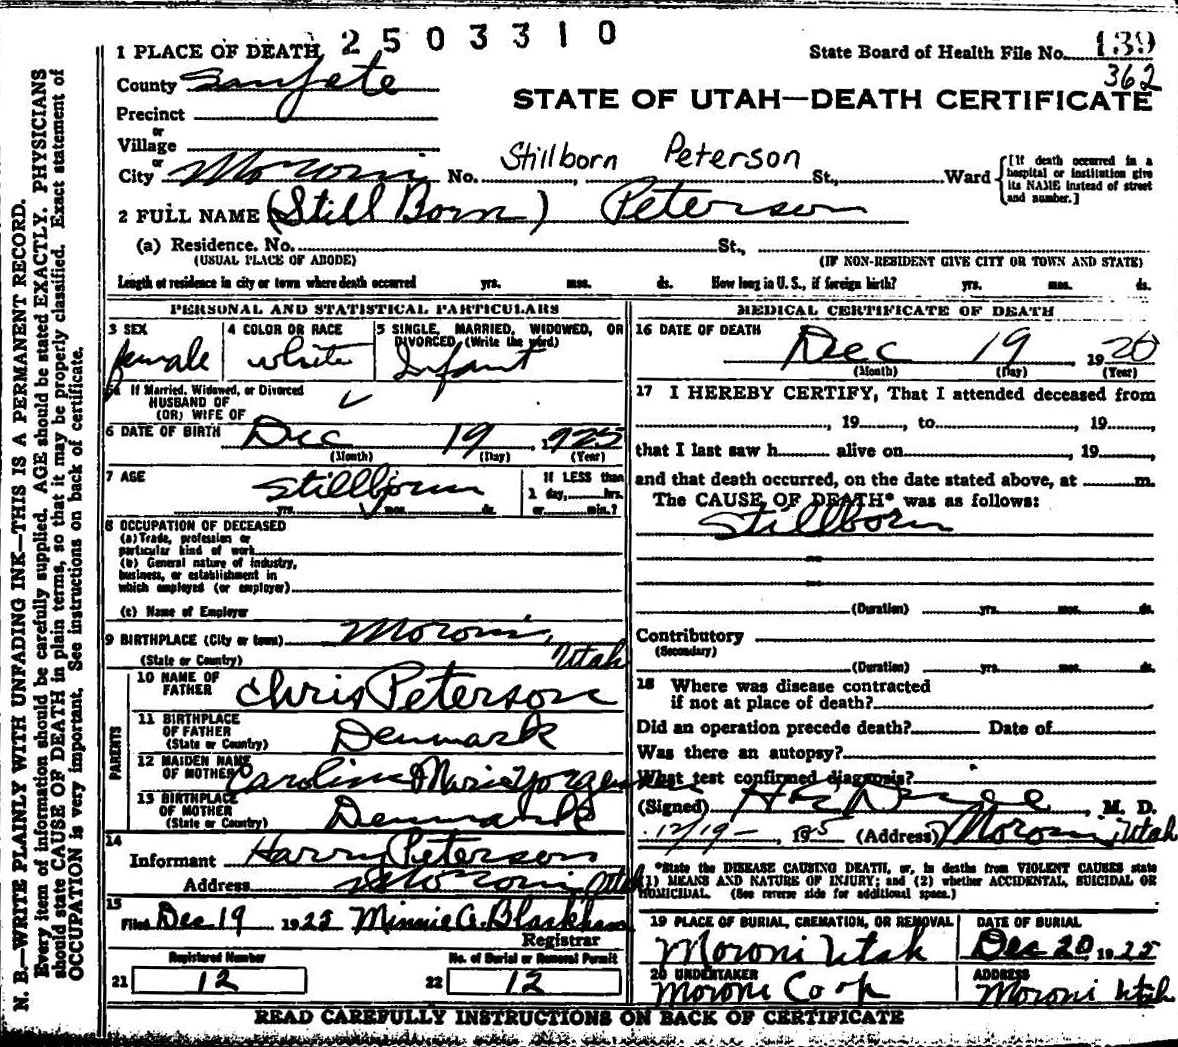 2503310
State Board of Health File No. 139
362
1 PLACE OF DEATH
County Sanpete
STATE OF UTAH—DEATH CERTIFICATE
Precinct
or
Village
or
City Moroni No. Stillborn Peterson St., Ward [If death occurred in a hospital or institution give its NAME instead of street and number.]
2 FULL NAME (Still Born) Peterson
(a) Residence. No. St.,
(USUAL PLACE OF ABODE) (IF NON-RESIDENT GIVE CITY OR TOWN AND STATE)
Length of residence in city or town where death occurred yrs. mos. ds. How long in U. S., if foreign birth? yrs. mos. ds.
PERSONAL AND STATISTICAL PARTICULARS
3 SEX female
4 COLOR OR RACE white
5 SINGLE, MARRIED, WIDOWED, OR DIVORCED (Write the word) Infant
If Married, Widowed, or Divorced
HUSBAND OF
(OR) WIFE OF
6 DATE OF BIRTH Dec 19 1925
(Month) (Day) (Year)
7 AGE Stillborn
yrs. mos. ds.
If LESS than
1 day, hrs.
or min.?
8 OCCUPATION OF DECEASED
(a) Trade, profession or
particular kind of work
(b) General nature of industry,
business, or establishment in
which employed (or employer)
(c) Name of Employer
9 BIRTHPLACE (City or town) Moroni,
(State or Country) Utah
PARENTS
10 NAME OF FATHER Chris Peterson
11 BIRTHPLACE OF FATHER (State or Country) Denmark
12 MAIDEN NAME OF MOTHER Caroline Marie
13 BIRTHPLACE OF MOTHER (State or Country) Denmark
14
Informant Harry Peterson
Address Moroni Utah
15
Filed Dec 19 1925 Minnie A. Blackham
Registrar
Registered Number
21 12
No. of Burial or Removal Permit
22 12
MEDICAL CERTIFICATE OF DEATH
16 DATE OF DEATH
Dec 19, 19
(Month) (Day) (Year)
17 I HEREBY CERTIFY, That I attended deceased from
, 19, to, 19,
that I last saw h alive on, 19,
and that death occurred, on the date stated above, at m.
The CAUSE OF DEATH* was as follows:
Stillborn
(Duration) yrs. mos. ds.
Contributory
(Secondary)
(Duration) yrs. mos. ds.
18 Where was disease contracted
if not at place of death?
Did an operation precede death? Date of
Was there an autopsy?
What test confirmed diagnosis?
(Signed), M. D.
12/19–, 1925 (Address) Moroni, Utah
*State the DISEASE CAUSING DEATH, or, in deaths from VIOLENT CAUSES state
(1) MEANS AND NATURE OF INJURY; and (2) whether ACCIDENTAL, SUICIDAL OR
HOMICIDAL. (See reverse side for additional space.)
19 PLACE OF BURIAL, CREMATION, OR REMOVAL
Moroni Utah
DATE OF BURIAL
Dec 20, 1925
20 UNDERTAKER
Moroni Co op
ADDRESS
Moroni Utah
READ CAREFULLY INSTRUCTIONS ON BACK OF CERTIFICATE
N. B.—WRITE PLAINLY WITH UNFADING INK—THIS IS A PERMANENT RECORD.
Every item of information should be carefully supplied. AGE should be stated EXACTLY. PHYSICIANS
should state CAUSE OF DEATH in plain terms, so that it may be properly classified. Exact statement of
OCCUPATION is very important. See instructions on back of certificate.